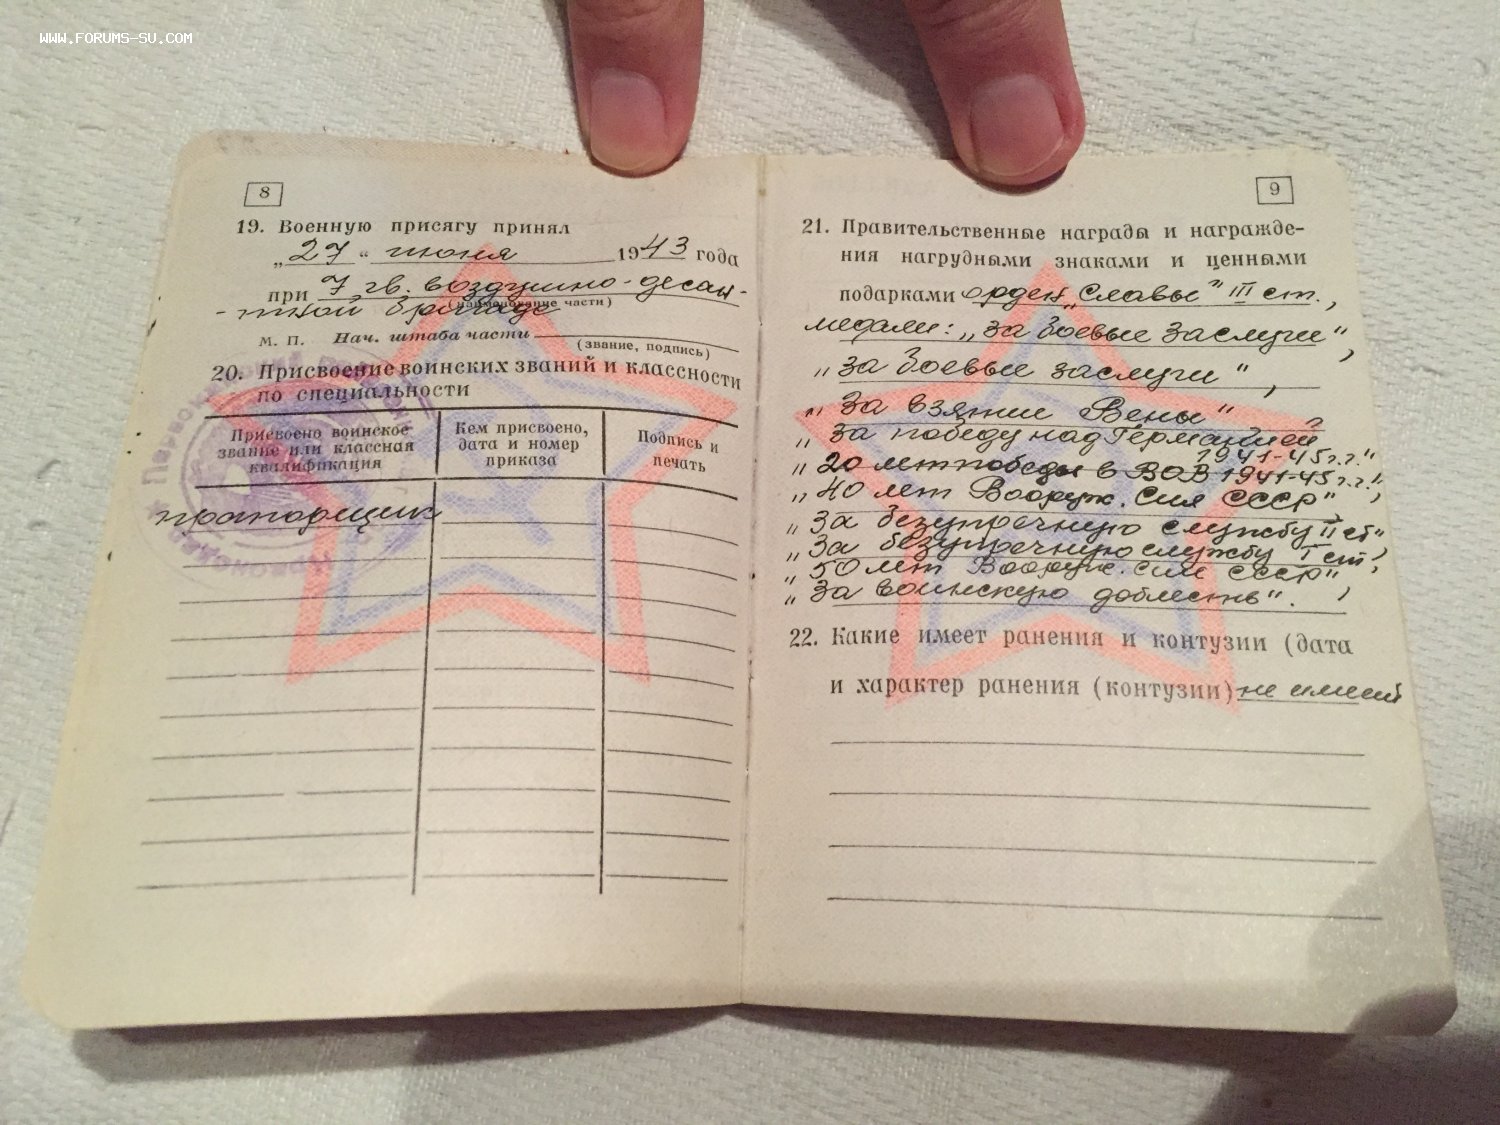 WWW.FORUMS-SU.COM
8
19. Военную присягу принял
„27“ июня 1943 года
при 7 гв. воздушно-десан-
(наименование части)
-тной бригаде
М. П. Нач. штаба части
(звание, подпись)
20. Присвоение воинских званий и классности
по специальности
Присвоено воинское звание или классная квалификация
Кем присвоено, дата и номер приказа
Подпись и печать
прапорщик
9
21. Правительственные награды и награжде-
ния нагрудными знаками и ценными
подарками орден „Славы" III ст.,
медали: „за боевые заслуги",
„за боевые заслуги",
„За взятие Вены",
„За победу над Германией
1941-45 г.г."
„20 лет победы в ВОВ 1941-45 г.г.",
„40 лет Вооруж. Сил СССР",
„За безупречную службу II ст"
„За безупречную службу I ст",
„50 лет Вооруж. Сил СССР",
„За воинскую доблесть".
22. Какие имеет ранения и контузии (дата
и характер ранения (контузии) не имеет